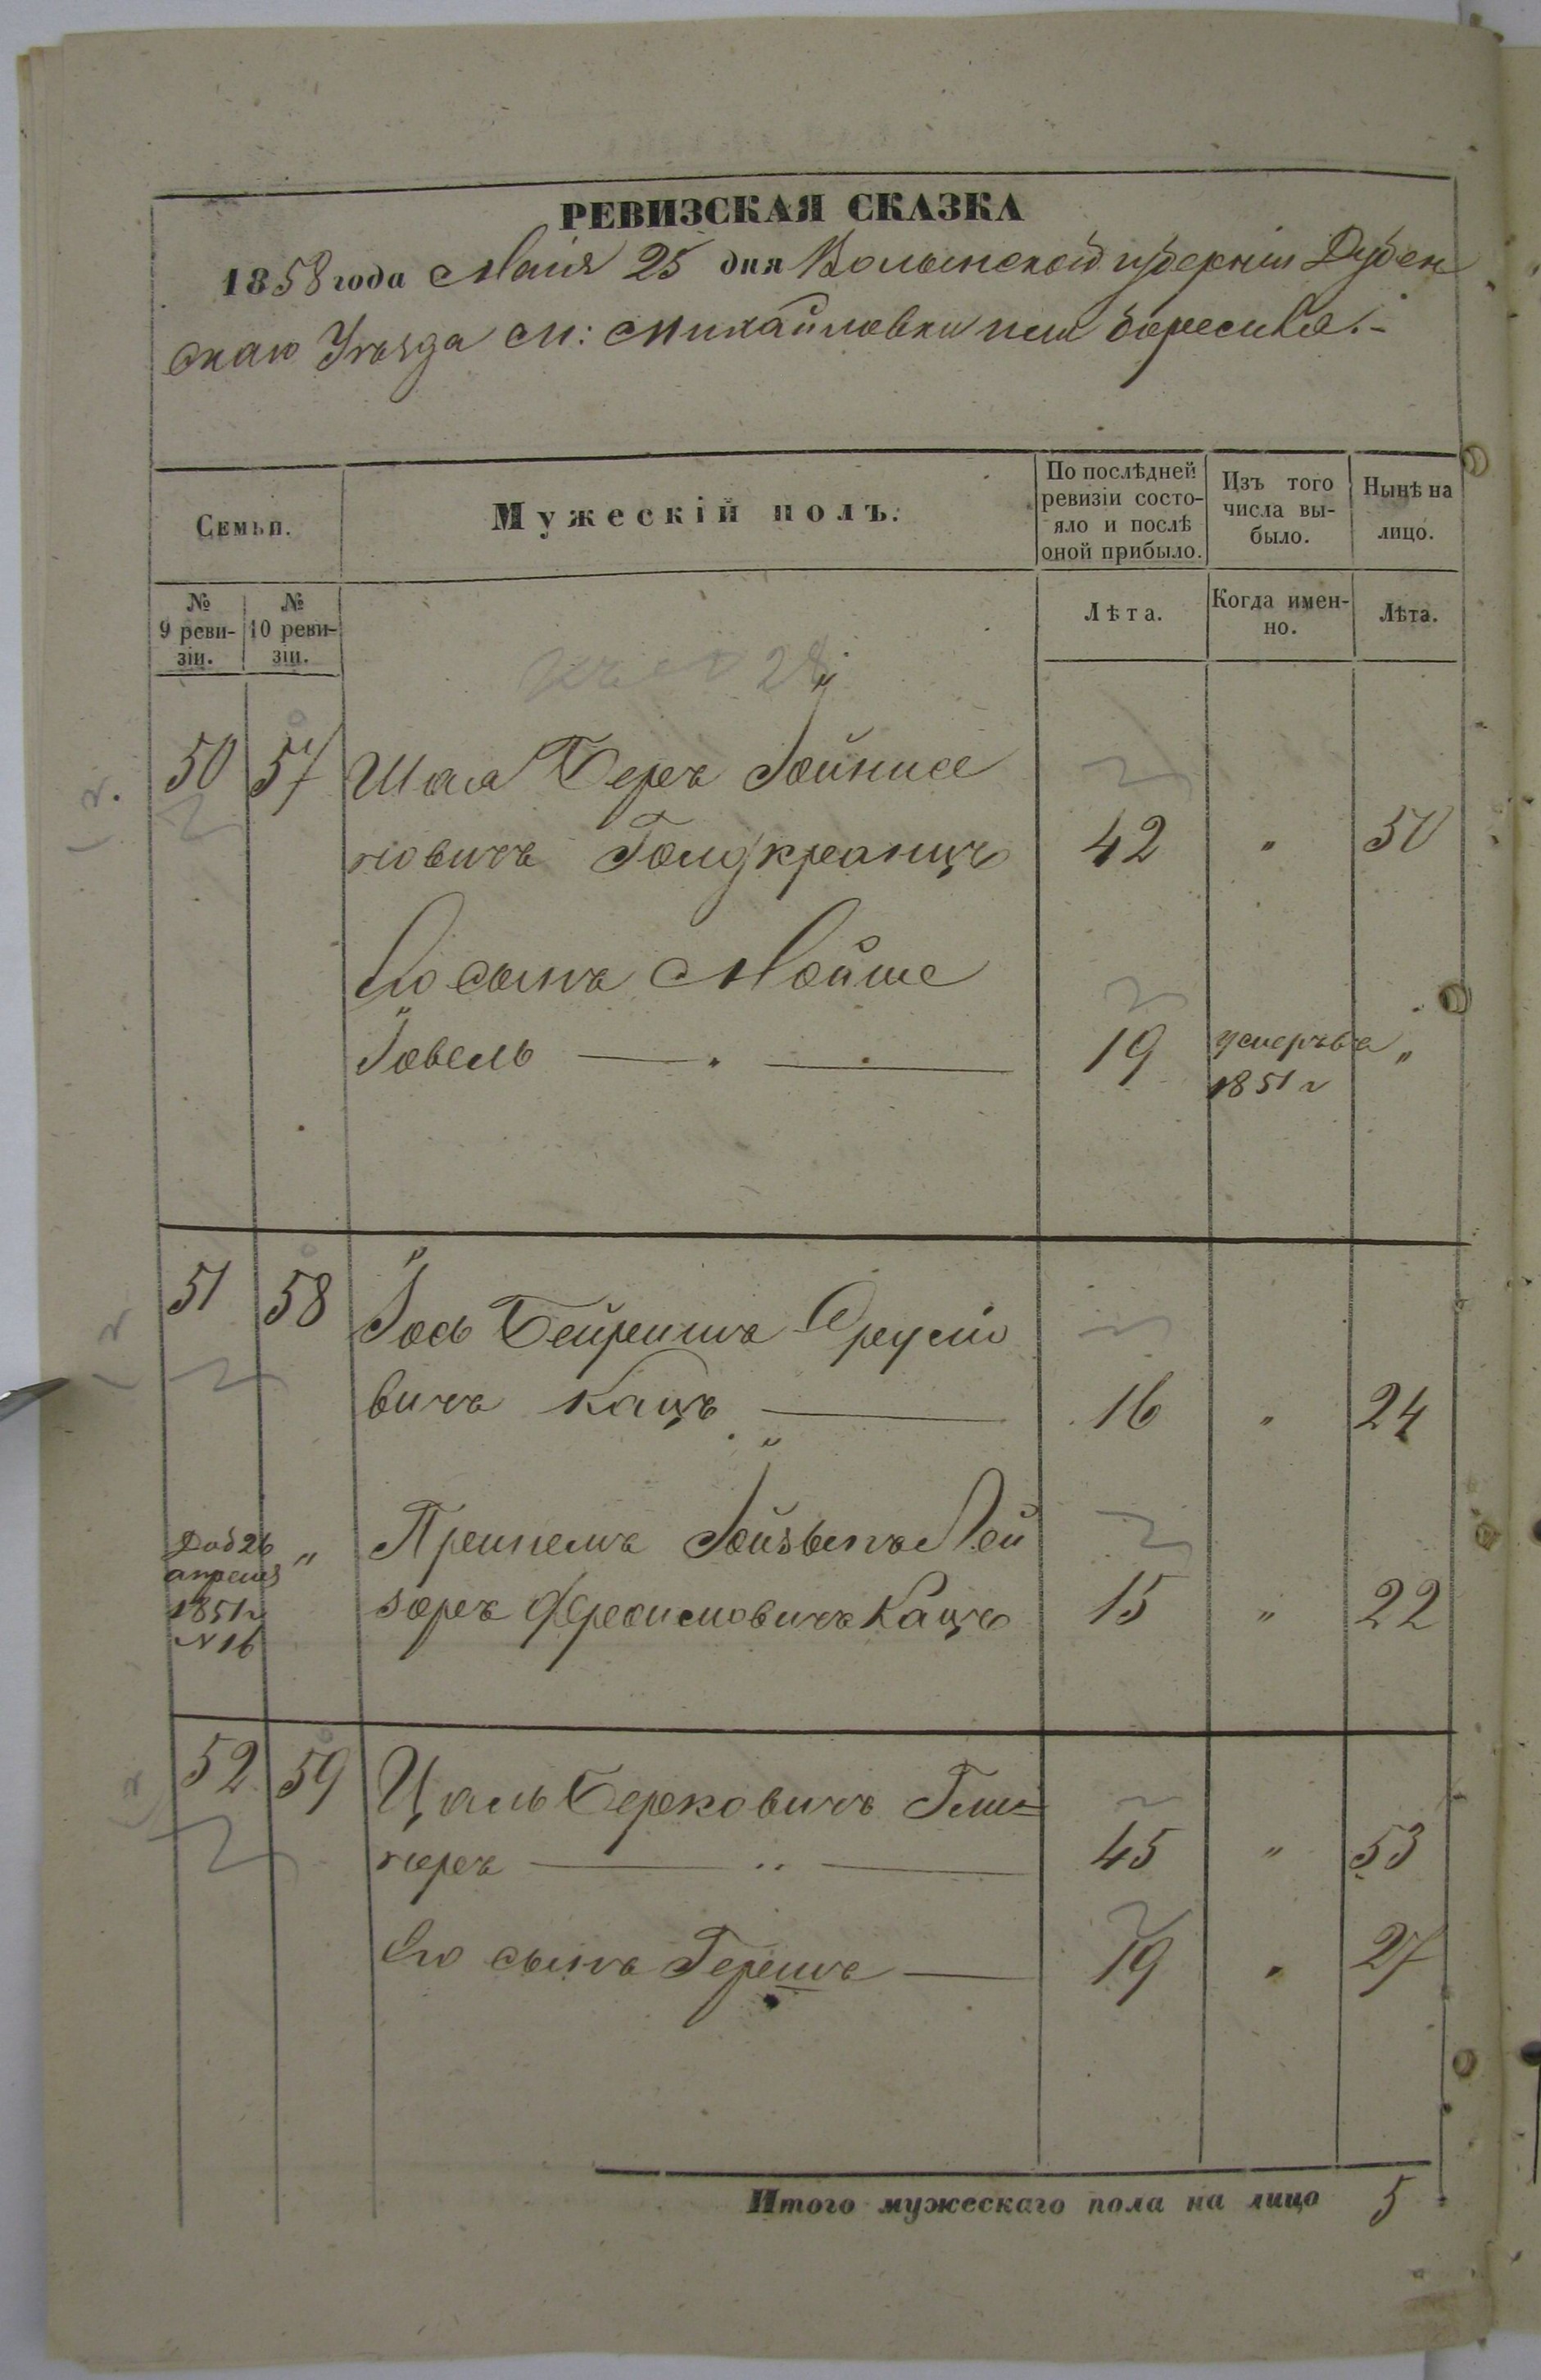 РЕВИЗСКАЯ СКАЗКА
1858 года Маія 25 дня Волынской губерніи Дубен
скаго Уѣзда м: Михайловки или Боремля.-
Семьи.
Мужескій полъ.
По послѣдней ревизіи состо-
яло и послѣ
оной прибыло.
Изъ того
числа вы-
было.
Нынѣ на
лицо.
№
9 реви-
зіи.
№
10 реви-
зіи.
Лѣта.
Когда имен-
но.
Лѣта.
50 57 Шая Беръ
новичъ Голдкранцъ 42 " 50
Его сынъ Мойше
Іовель 19 умеръ въ "
1851 г
51 58 Іось Бейришъ
вичъ Кацъ 16 " 24
Доб 26
апреля
1851 г
N 16
" Лей
зоръ Кацъ 15 " 22
52 59 Цаль Берковичъ Гли=
неръ 45 " 53
Его сынъ Гершъ 19 " 27
Итого мужескаго пола на лицо 5